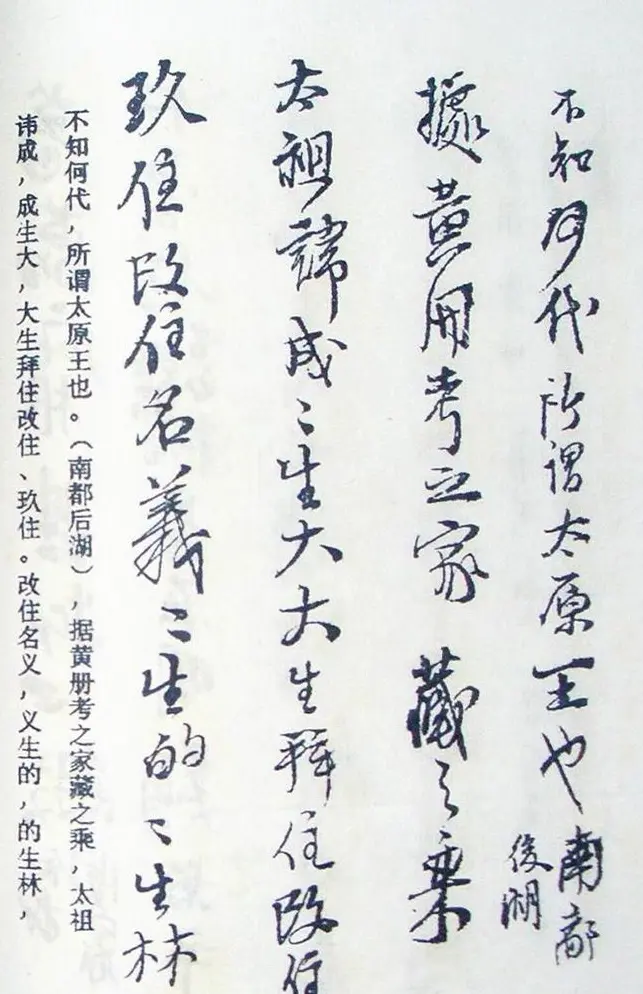 不知何代所謂太原王也南都
後湖
據黄册考之家藏之乘
太祖諱成〻生大大生拜住改住
玖住改住名義〻生的〻生林
不知何代，所谓太原王也。（南都后湖），据黄册考之家藏之乘，太祖
讳成，成生大，大生拜住改住、玖住。改住名义，义生的，的生林，